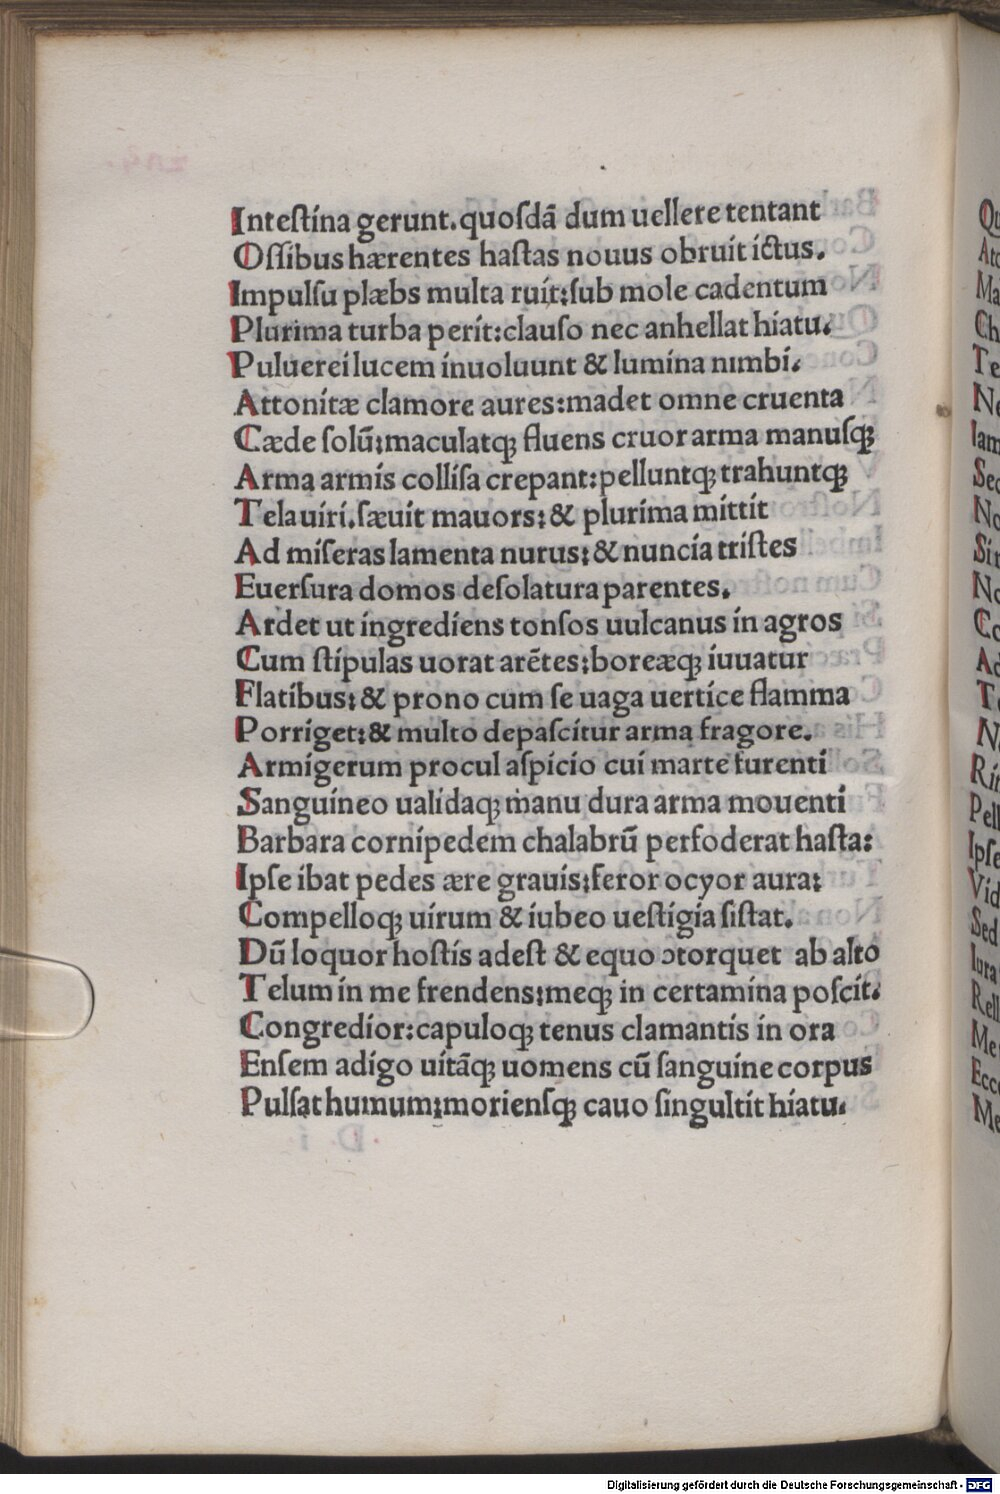 Inteſtina gerunt. quoſdã dum uellere tentant
Oſſibus hærentes haſtas nouus obruit ictus.
Impulſu plæbs multa ruit: ſub mole cadentum
Plurima turba perit: clauſo nec anhellat hiatu.
Puluerei lucem inuoluunt & lumina nimbi.
Attonitæ clamore aures: madet omne cruenta
Cæde ſolũ: maculatqꝫ fluens cruor arma manuſqꝫ
Arma armis colliſa crepant: pelluntqꝫ trahuntqꝫ
Tela uiri. ſæuit mauors: & plurima mittit
Ad miſeras lamenta nurus: & nuncia triſtes
Euerſura domos deſolatura parentes.
Ardet ut ingrediens tonſos uulcanus in agros
Cum ſtipulas uorat arẽtes: boreæqꝫ iuuatur
Flatibus: & prono cum ſe uaga uertice flamma
Porriget: & multo depaſcitur arma fragore.
Armigerum procul aſpicio cui marte furenti
Sanguineo ualidaqꝫ manu dura arma mouenti
Barbara cornipedem chalabrũ perfoderat haſta:
Ipſe ibat pedes ære grauis: feror ocyor aura:
Compelloqꝫ uirum & iubeo ueſtigia ſiſtat.
Dũ loquor hoſtis adeſt & equo ↄtorquet ab alto
Telum in me frendens: meqꝫ in certamina poſcit.
Congredior: capuloqꝫ tenus clamantis in ora
Enſem adigo uitãqꝫ uomens cũ ſanguine corpus
Pulſat humum: morienſqꝫ cauo ſingultit hiatu.
Digitalisierung gefördert durch die Deutsche Forschungsgemeinschaft - DFG